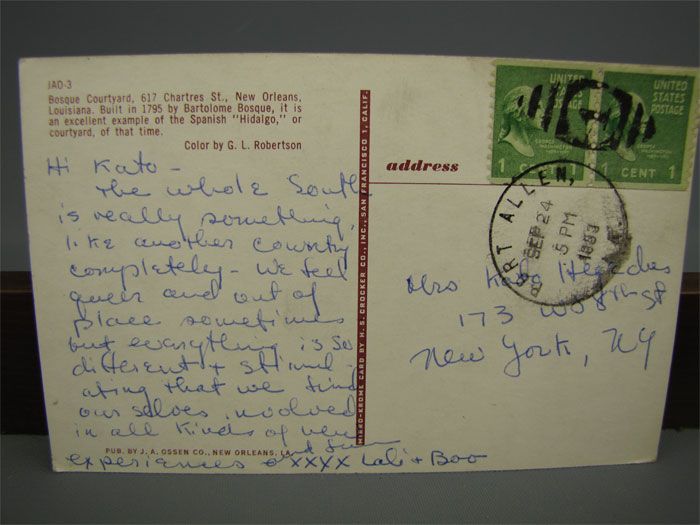 JAO-3
Bosque Courtyard, 617 Chartres St., New Orleans,
Louisiana. Built in 1795 by Bartolome Bosque, it is
an excellent example of the Spanish "Hidalgo," or
courtyard, of that time.
Color by G. L. Robertson
Hi Kato -
The whole South
is really something,
like another country
completely - We feel
queer and out of
place sometimes
but everything is so
different & stimul-
ating that we find
ourselves involved
in all kinds of new
and fun
experiences XXXX Lali + Boo
PUB. BY J. A. OSSEN CO., NEW ORLEANS, LA.
MIRRO-KROME CARD BY H. S. CROCKER CO., INC., SAN FRANCISCO 1, CALIF.
address
UNITED STATES POSTAGE
GEORGE WASHINGTON
1 CENT 1
UNITED STATES POSTAGE
GEORGE WASHINGTON
1 CENT 1
PORT ALLEN,
SEP 24
5 PM
Mrs
173 St
New York, NY